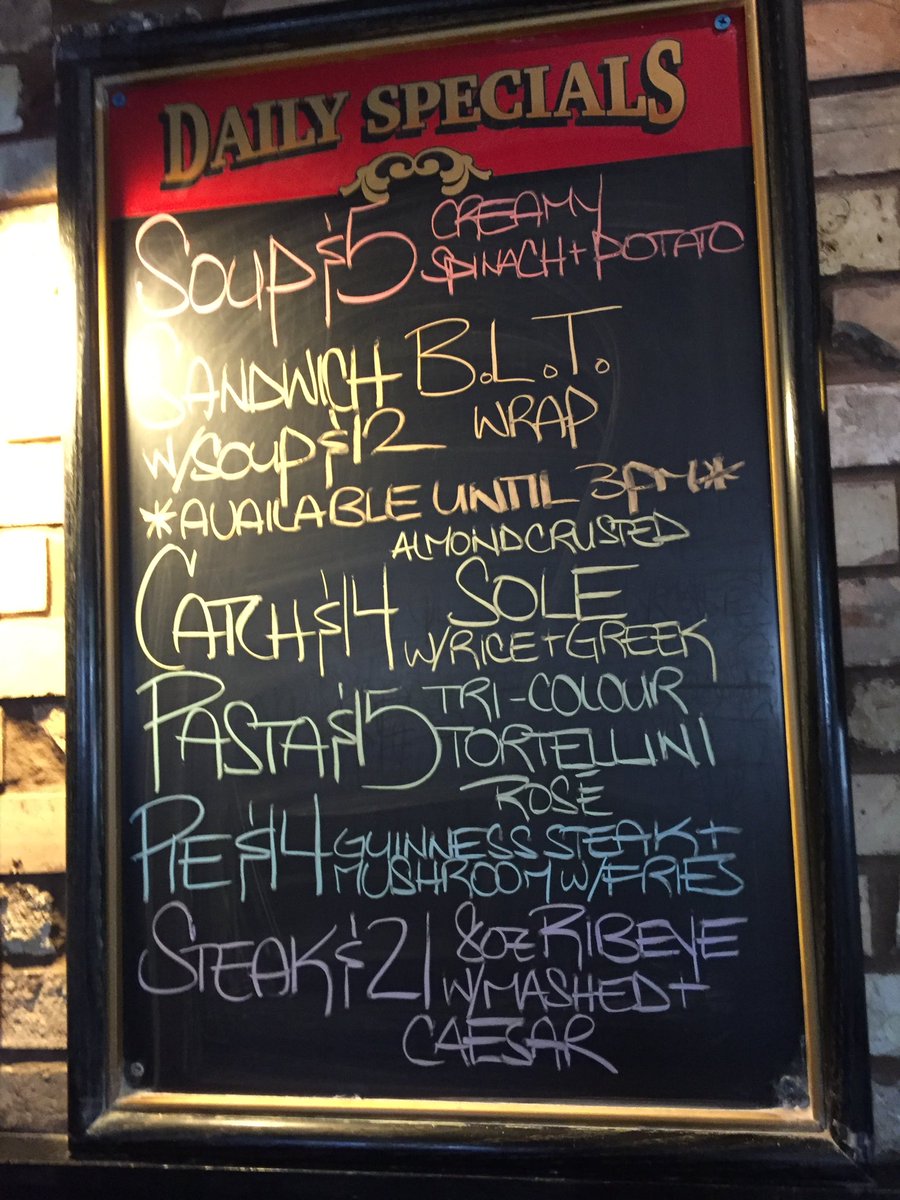 DAILY SPECIALS
SOUP $5 CREAMY
SPINACH + POTATO
SANDWICH B.L.T.
W/SOUP $12 WRAP
*AVAILABLE UNTIL 3PM*
ALMOND CRUSTED
CATCH $14 SOLE
W/RICE + GREEK
PASTA $15 TRI-COLOUR
TORTELLINI
ROSÉ
PIE $14 GUINNESS STEAK +
MUSHROOM W/FRIES
STEAK $21 8oz RIBEYE
W/MASHED +
CAESAR